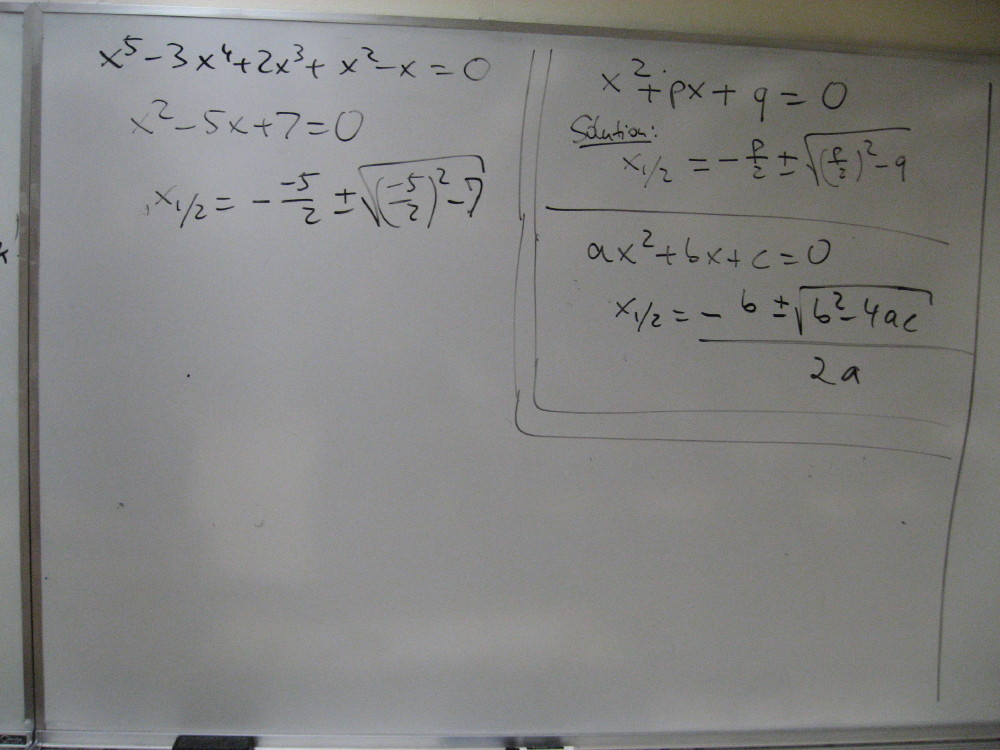 x⁵-3x⁴+2x³+x²-x=0
x²-5x+7=0
x₁/₂ = - -5/2 ± √((-5/2)²-7)
x²+px+q=0
Solution:
x₁/₂ = - p/2 ± √((p/2)²-q)
ax²+bx+c=0
x₁/₂ = - b ± √(b²-4ac)
2a